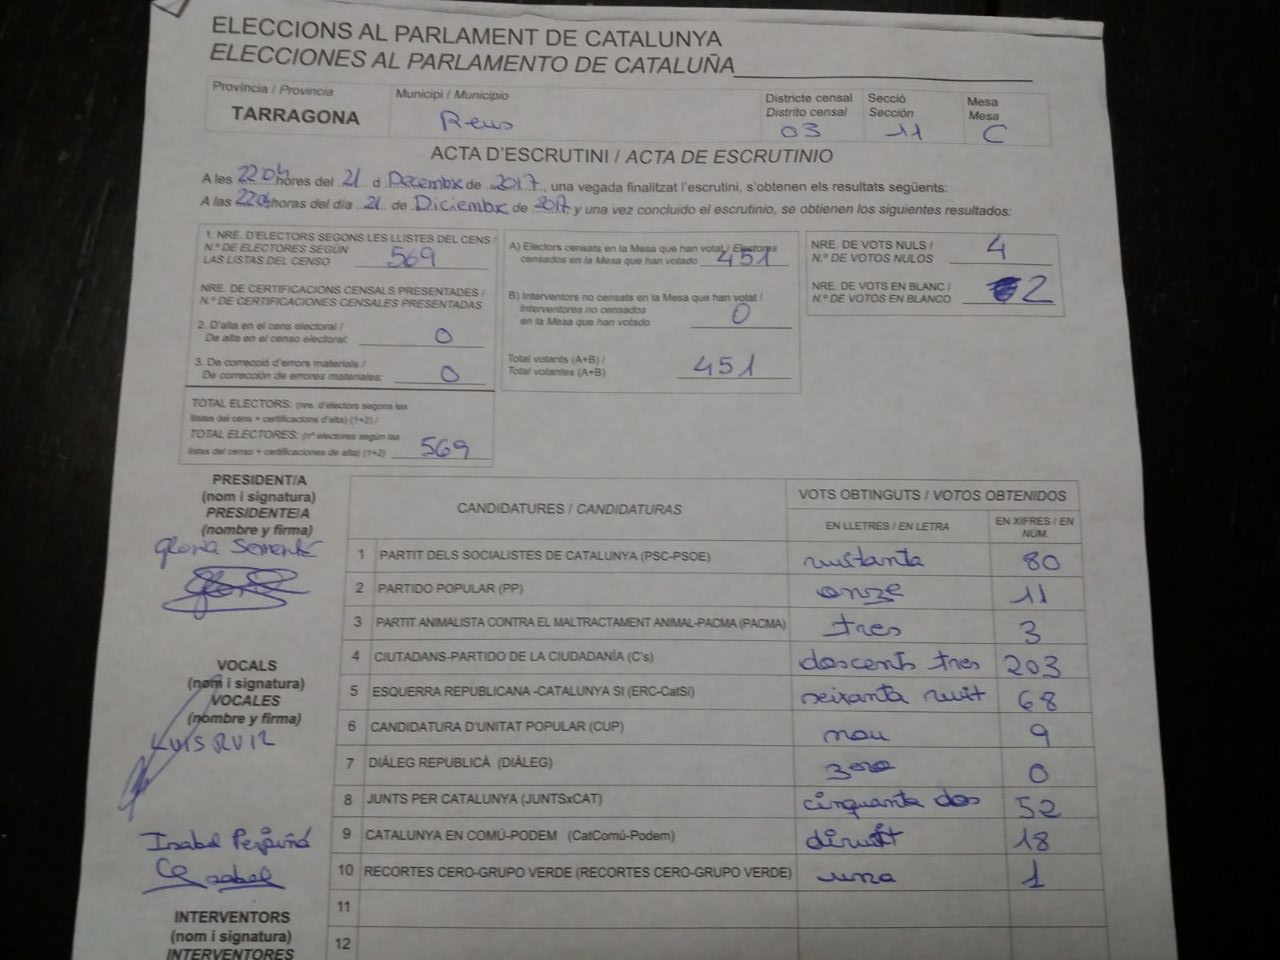 ELECCIONS AL PARLAMENT DE CATALUNYA
ELECCIONES AL PARLAMENTO DE CATALUÑA
Província / Provincia
TARRAGONA
Municipi / Municipio
Reus
Districte censal
Distrito censal
03
Secció
Sección
11
Mesa
Mesa
C
ACTA D'ESCRUTINI / ACTA DE ESCRUTINIO
A les 22 04 hores del 21 d Decembre de 2017, una vegada finalitzat l'escrutini, s'obtenen els resultats següents:
A las 22 04 horas del día 21 de Diciembre de 2017 y una vez concluido el escrutinio, se obtienen los siguientes resultados:
1. NRE. D'ELECTORS SEGONS LES LLISTES DEL CENS /
N.º DE ELECTORES SEGÚN
LAS LISTAS DEL CENSO 569
NRE. DE CERTIFICACIONS CENSALS PRESENTADES /
N.º DE CERTIFICACIONES CENSALES PRESENTADAS
2. D'alta en el cens electoral /
De alta en el censo electoral: 0
3. De correcció d'errors materials /
De corrección de errores materiales: 0
TOTAL ELECTORS: (nre. d'electors segons les
llistes del cens + certificacions d'alta) (1+2) /
TOTAL ELECTORES: (nº electores según las
listas del censo + certificaciones de alta) (1+2) 569
A) Electors censats en la Mesa que han votat / Electores
censados en la Mesa que han votado 451
B) Interventors no censats en la Mesa que han votat /
Interventores no censados
en la Mesa que han votado 0
Total votants (A+B) /
Total votantes (A+B) 451
NRE. DE VOTS NULS /
N.º DE VOTOS NULOS 4
NRE. DE VOTS EN BLANC /
N.º DE VOTOS EN BLANCO 2
PRESIDENT/A
(nom i signatura)
PRESIDENTE/A
(nombre y firma)
Gloria
VOCALS
(nom i signatura)
VOCALES
(nombre y firma)
LUIS RUIZ
Isabel Perpiñá
Isabel
INTERVENTORS
(nom i signatura)
INTERVENTORES
CANDIDATURES / CANDIDATURAS
VOTS OBTINGUTS / VOTOS OBTENIDOS
EN LLETRES / EN LETRA
EN XIFRES / EN
NÚM.
1 PARTIT DELS SOCIALISTES DE CATALUNYA (PSC-PSOE) vuitanta 80
2 PARTIDO POPULAR (PP) onze 11
3 PARTIT ANIMALISTA CONTRA EL MALTRACTAMENT ANIMAL-PACMA (PACMA) tres 3
4 CIUTADANS-PARTIDO DE LA CIUDADANÍA (C's) doscents tres 203
5 ESQUERRA REPUBLICANA -CATALUNYA SÍ (ERC-CatSí) seixanta vuit 68
6 CANDIDATURA D'UNITAT POPULAR (CUP) nou 9
7 DIÀLEG REPUBLICÀ (DIÀLEG) zero 0
8 JUNTS PER CATALUNYA (JUNTSxCAT) cinquanta dos 52
9 CATALUNYA EN COMÚ-PODEM (CatComú-Podem) divuit 18
10 RECORTES CERO-GRUPO VERDE (RECORTES CERO-GRUPO VERDE) una 1
11
12